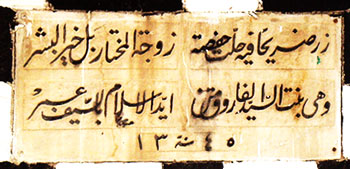 زر ضريحا فيه حلت حفصة زوجة المختار بل خير البشر
وهي بنت السيد الفاروق من ايد الاسلام بالسيف عمر
سنة ١٣٤٥